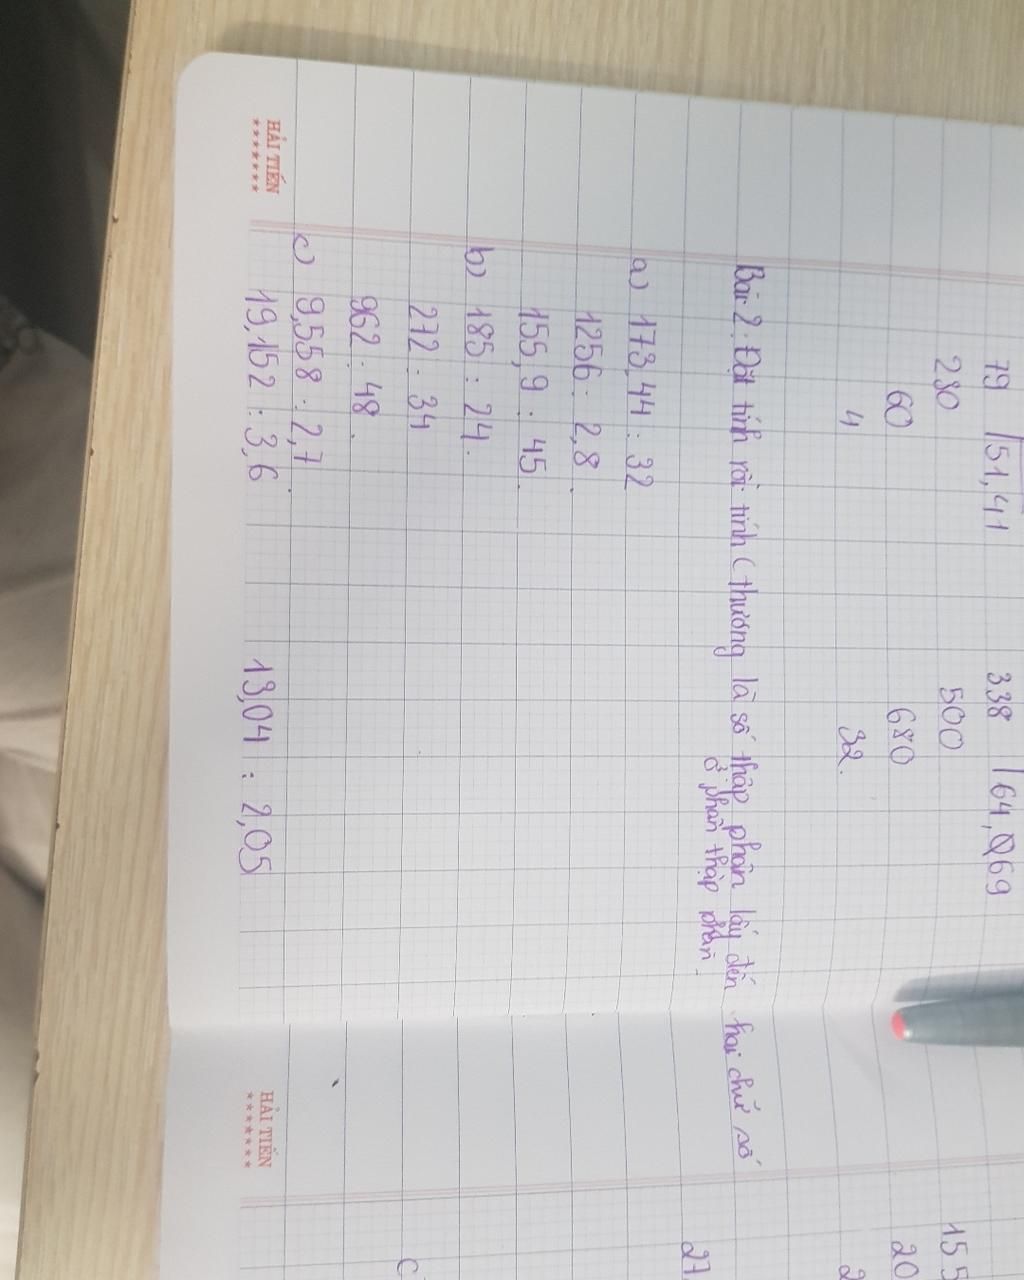 79 | 51,41
280
60
4
338 | 64,069
500
680
32.
Bài 2: Đặt tính rồi tính (thương là số thập phân lấy đến hai chữ số
ở phần thập phân.
a) 173,44 : 32
1256 : 2,8
155,9 : 45
b) 185 : 24.
272 : 34
962 : 48.
c) 9,558 : 2,7
19,152 : 3,6 13,04 : 2,05
HẢI TIẾN
HẢI TIẾN
155
20
2
27
C